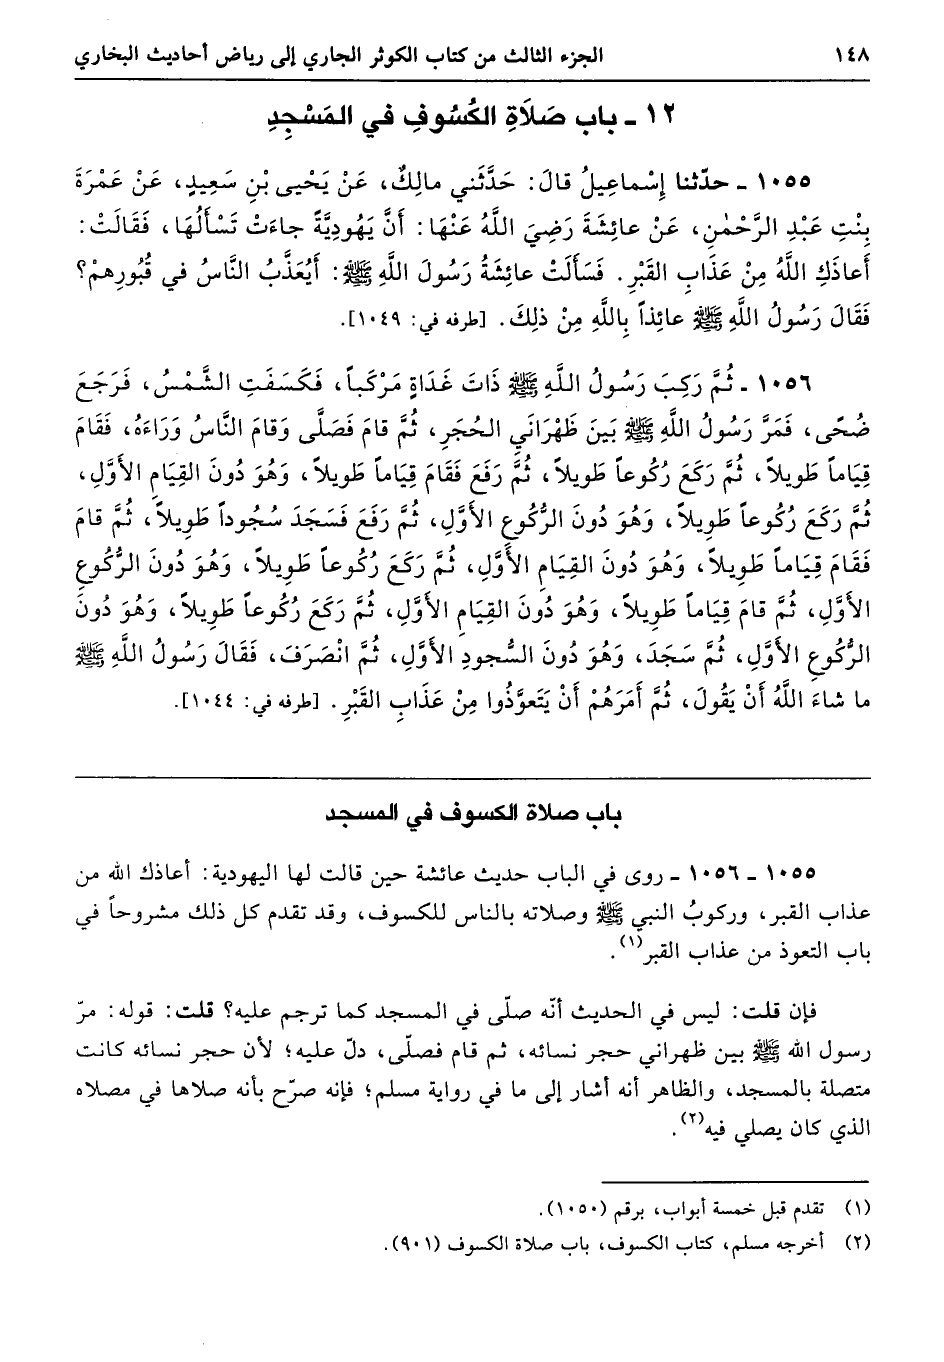 ١٤٨ الجزء الثالث من كتاب الكوثر الجاري إلى رياض أحاديث البخاري
١٢ ـ باب صَلَاةِ الكُسُوفِ في المَسْجِدِ
١٠٥٥ ـ حدّثنا إِسْماعِيلُ قالَ: حَدَّثَني مالِكٌ، عَنْ يَحْيى بْنِ سَعِيدٍ، عَنْ عَمْرَةَ
بِنْتِ عَبْدِ الرَّحْمٰنِ، عَنْ عائِشَةَ رَضِيَ اللَّهُ عَنْهَا: أَنَّ يَهُودِيَّةً جاءَتْ تَسْأَلُهَا، فَقَالَتْ:
أَعاذَكِ اللَّهُ مِنْ عَذَابِ القَبْرِ. فَسَأَلَتْ عائِشَةُ رَسُولَ اللَّهِ ﷺ: أَيُعَذَّبُ النَّاسُ في قُبُورِهِمْ؟
فَقَالَ رَسُولُ اللَّهِ ﷺ عائِذاً بِاللَّهِ مِنْ ذلِكَ. [طرفه في: ١٠٤٩].
١٠٥٦ ـ ثُمَّ رَكِبَ رَسُولُ اللَّهِ ﷺ ذَاتَ غَدَاةٍ مَرْكَباً، فَكَسَفَتِ الشَّمْسُ، فَرَجَعَ
ضُحًى، فَمَرَّ رَسُولُ اللَّهِ ﷺ بَينَ ظَهْرَانَيِ الحُجَرِ، ثُمَّ قامَ فَصَلَّى وَقامَ النَّاسُ وَرَاءَهُ، فَقَامَ
قِيَاماً طَوِيلاً، ثُمَّ رَكَعَ رُكُوعاً طَوِيلاً، ثُمَّ رَفَعَ فَقَامَ قِيَاماً طَوِيلاً، وَهُوَ دُونَ القِيَامِ الأَوَّلِ،
ثُمَّ رَكَعَ رُكُوعاً طَوِيلاً، وَهُوَ دُونَ الرُّكُوعِ الأَوَّلِ، ثُمَّ رَفَعَ فَسَجَدَ سُجُوداً طَوِيلاً، ثُمَّ قامَ
فَقَامَ قِيَاماً طَوِيلاً، وَهُوَ دُونَ القِيَامِ الأَوَّلِ، ثُمَّ رَكَعَ رُكُوعاً طَوِيلاً، وَهُوَ دُونَ الرُّكُوعِ
الأَوَّلِ، ثُمَّ قامَ قِيَاماً طَوِيلاً، وَهُوَ دُونَ القِيَامِ الأَوَّلِ، ثُمَّ رَكَعَ رُكُوعاً طَوِيلاً، وَهُوَ دُونَ
الرُّكُوعِ الأَوَّلِ، ثُمَّ سَجَدَ، وَهُوَ دُونَ السُّجودِ الأَوَّلِ، ثُمَّ انْصَرَفَ، فَقَالَ رَسُولُ اللَّهِ ﷺ
ما شاءَ اللَّهُ أَنْ يَقُولَ، ثُمَّ أَمَرَهُمْ أَنْ يَتَعوَّذُوا مِنْ عَذَابِ القَبْرِ. [طرفه في: ١٠٤٤].
باب صلاة الكسوف في المسجد
١٠٥٥ ـ ١٠٥٦ ـ روى في الباب حديث عائشة حين قالت لها اليهودية: أعاذك الله من
عذاب القبر، وركوبُ النبي ﷺ وصلاته بالناس للكسوف، وقد تقدم كل ذلك مشروحاً في
باب التعوذ من عذاب القبر(١).
فإن قلت: ليس في الحديث أنّه صلّى في المسجد كما ترجم عليه؟ قلت: قوله: مرّ
رسول الله ﷺ بين ظهراني حجر نسائه، ثم قام فصلّى، دلّ عليه؛ لأن حجر نسائه كانت
متصلة بالمسجد، والظاهر أنه أشار إلى ما في رواية مسلم؛ فإنه صرّح بأنه صلاها في مصلاه
الذي كان يصلي فيه(٢).
(١) تقدم قبل خمسة أبواب، برقم (١٠٥٠).
(٢) أخرجه مسلم، كتاب الكسوف، باب صلاة الكسوف (٩٠١).